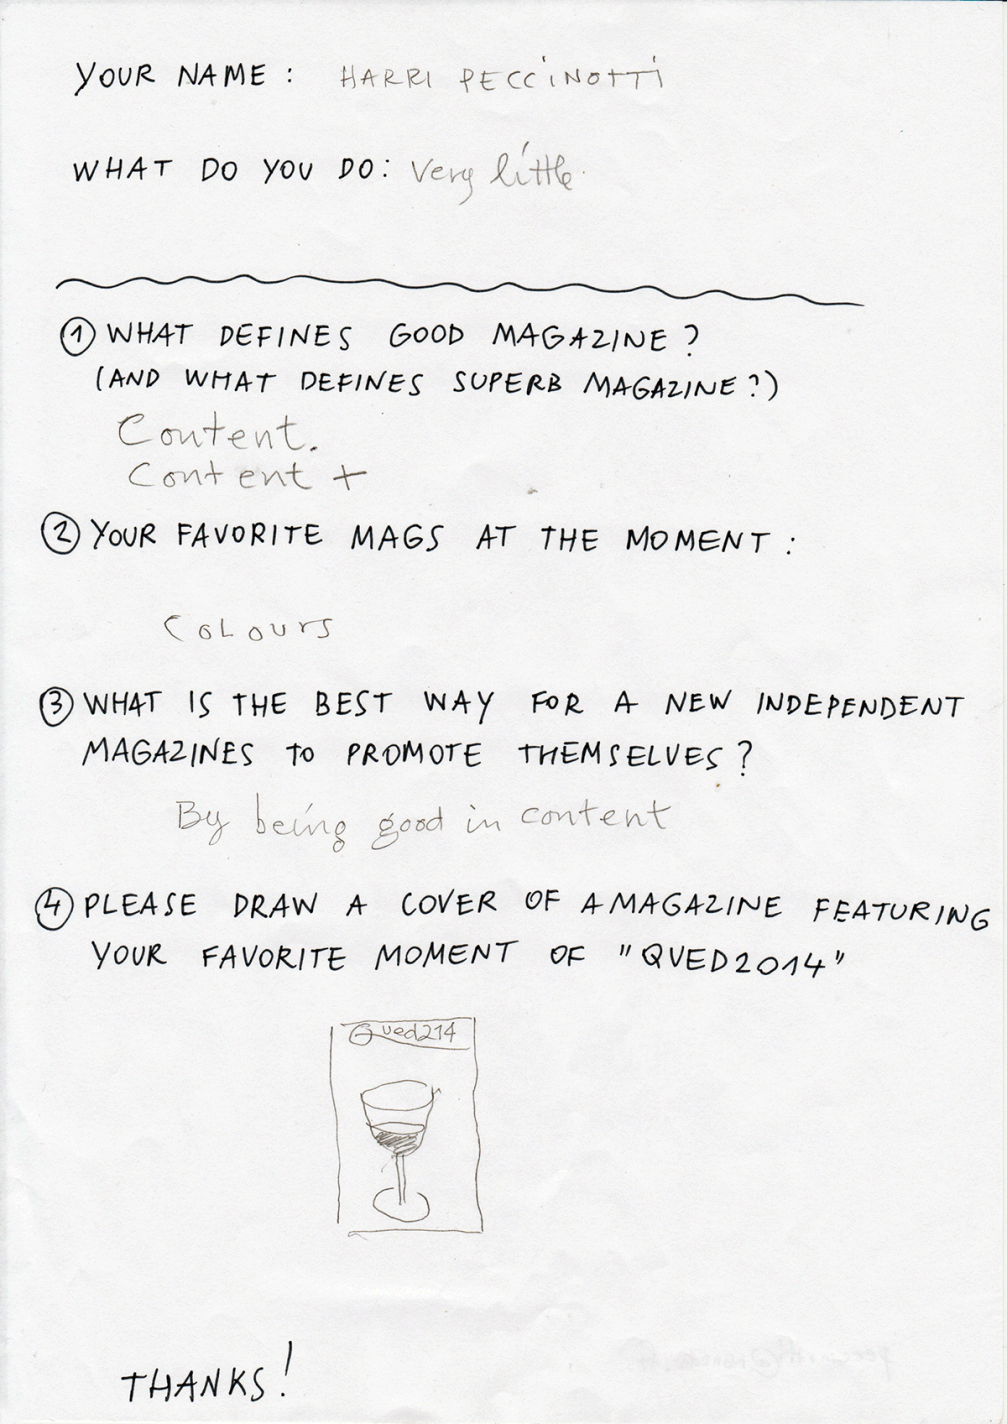 YOUR NAME : HARRI PECCiNOTTi
WHAT DO YOU DO: Very little.
① WHAT DEFINES GOOD MAGAZINE ?
(AND WHAT DEFINES SUPERB MAGAZINE?)
Content.
Content +
② YOUR FAVORITE MAGS AT THE MOMENT :
COLOURS
③ WHAT IS THE BEST WAY FOR A NEW INDEPENDENT
MAGAZINES TO PROMOTE THEMSELVES ?
By being good in content
④ PLEASE DRAW A COVER OF A MAGAZINE FEATURING
YOUR FAVORITE MOMENT OF "QVED2014"
Qued214
THANKS!